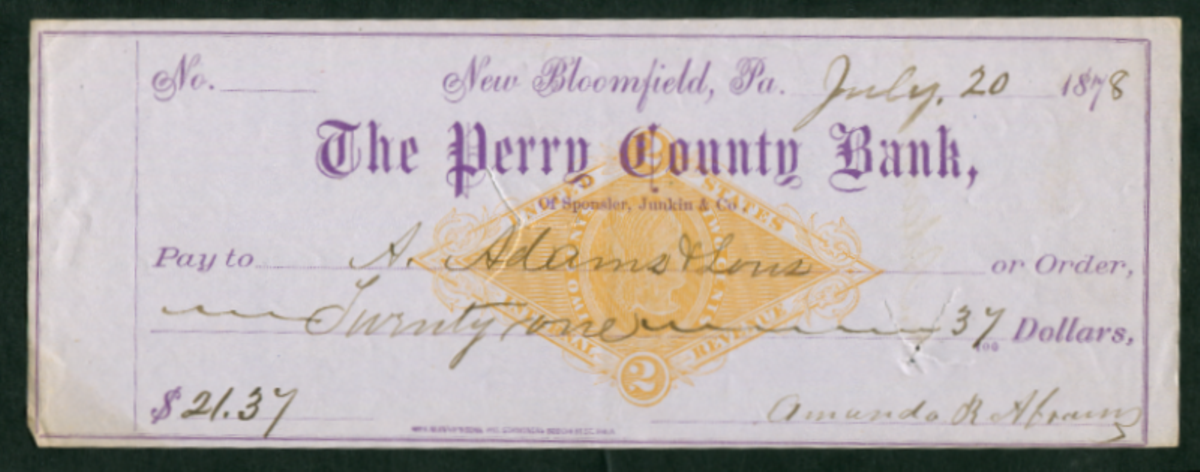 No. New Bloomfield, Pa. July, 20 1878
The Perry County Bank,
UNITED STATES
Of Sponsler, Junkin & Co
Pay to A. Adams & Sons or Order,
Twenty one 37/100 Dollars,
INTERNAL REVENUE
2
$ 21.37 Amanda R Abrams